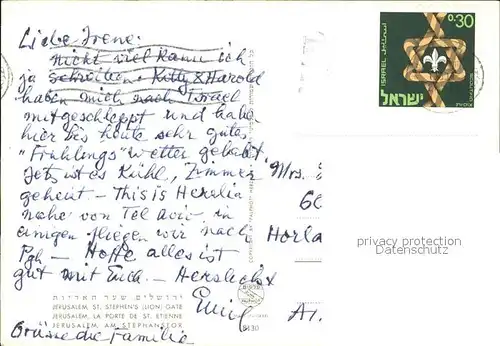 Liebe Irene:
nicht viel kann ich
ja schreiben. Kitty & Harold
haben mich nach Israel
mitgeschleppt und habe
hier bis heute sehr gutes
"Frühlings"wetter gehabt.
Jetzt ist es Kühl, Zimmer
geheizt - This is Herzlia
nahe von Tel Aviv. in
einigen fliegen wir nach
Pgh - Hoffe alles ist
gut mit Euch. - Herzlichst
Emil
Grüsse die Familie
ירושלים שער האריות
JERUSALEM, ST. STEPHEN'S (LION) GATE
JERUSALEM, LA PORTE DE ST. ETIENNE
JERUSALEM, AM STEPHANSTOR
8130
0.30
ISRAEL
اسرائيل
ישראל
Mrs.
60
Horla
Ar.
privacy protection
Datenschutz